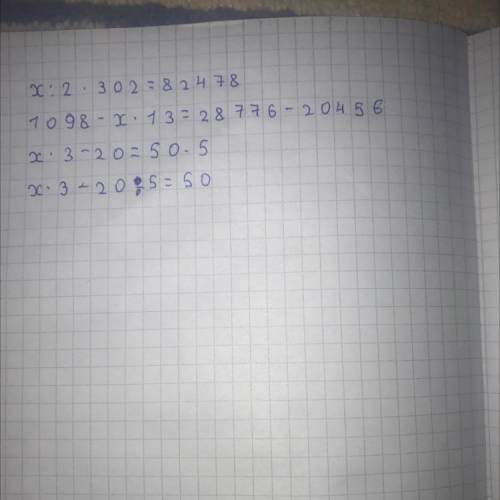 x : 2 · 302 = 82478
1098 - x · 13 = 28776 - 20456
x · 3 - 20 = 50 · 5
x · 3 - 20 : 5 = 50